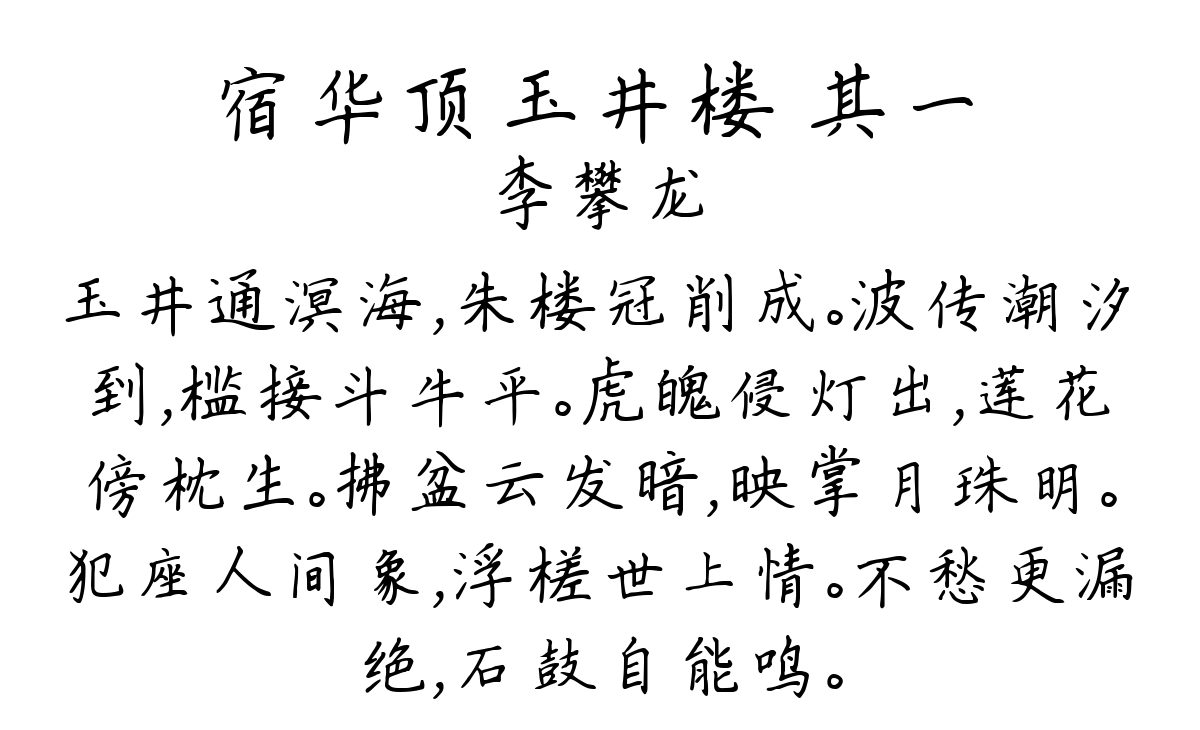 宿华顶玉井楼 其一
李攀龙
玉井通溟海,朱楼冠削成。波传潮汐
到,槛接斗牛平。虎魄侵灯出,莲花
傍枕生。拂盆云发暗,映掌月珠明。
犯座人间象,浮槎世上情。不愁更漏
绝,石鼓自能鸣。